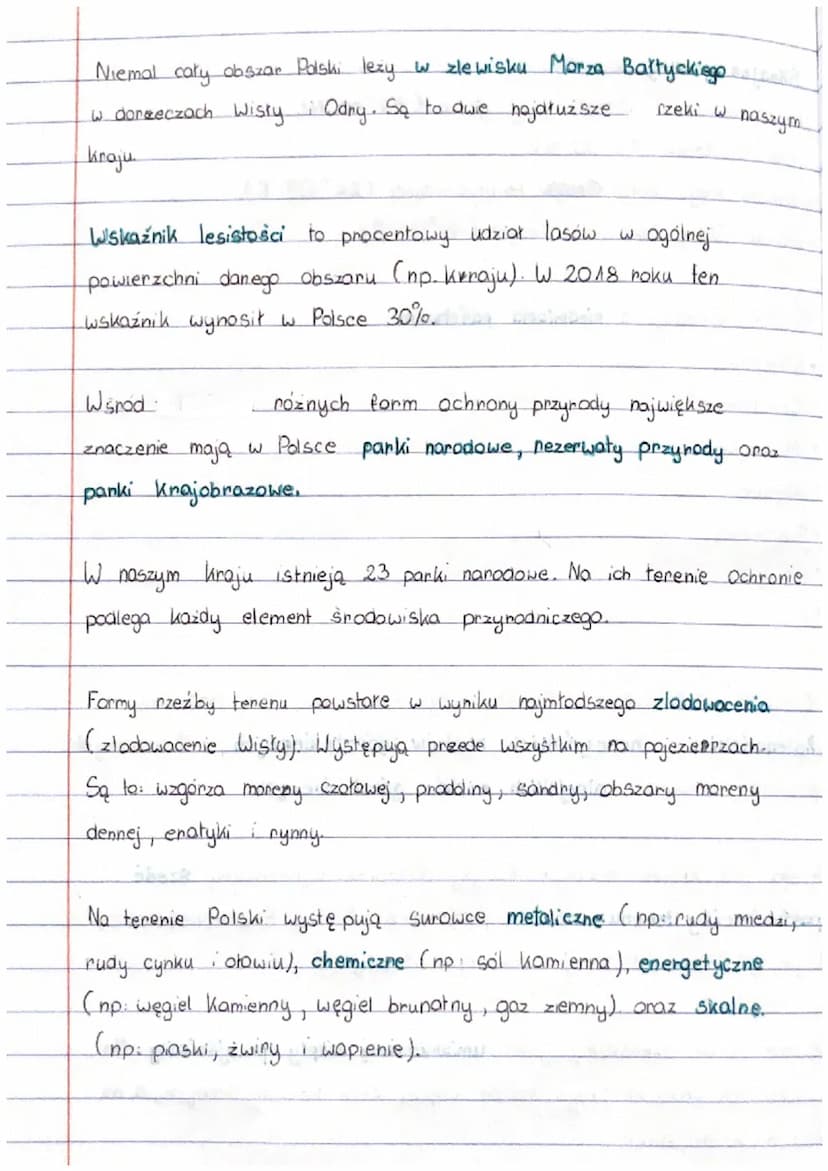 Niemal cały obszar Polski leży w zlewisku Morza Bałtyckiego
w dorzeczach Wisły i Odry. Są to dwie najdłuższe rzeki w naszym
kraju.
Wskaźnik lesistości to procentowy udział lasów w ogólnej
powierzchni danego obszaru (np. kraju). W 2018 roku ten
wskaźnik wynosił w Polsce 30%.
Wśród różnych form ochrony przyrody największe
znaczenie mają w Polsce parki narodowe, rezerwaty przyrody oraz
parki krajobrazowe.
W naszym kraju istnieją 23 parki narodowe. Na ich terenie ochronie
podlega każdy element środowiska przyrodniczego.
Formy rzeźby terenu powstałe w wyniku najmłodszego zlodowacenia
(zlodowacenie Wisły). Występują przede wszystkim na pojezierzach.
Są to: wzgórza moreny czołowej, pradoliny, sandry, obszary moreny
dennej, eratyki i rynny.
Na terenie Polski występują surowce metaliczne (np: rudy miedzi,
rudy cynku i ołowiu), chemiczne (np: sól kamienna), energetyczne
(np: węgiel kamienny, węgiel brunatny, gaz ziemny) oraz skalne.
(np: piaski, żwiry i wapienie).